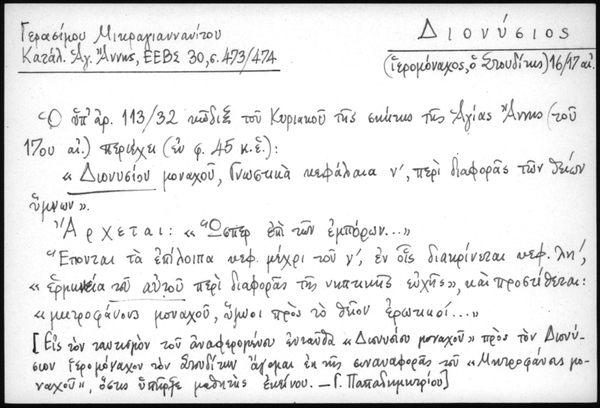 Γερασίμου Μικραγιαννανίτου
Κατάλ. Ἁγ. Ἄννης, ΕΕΒΣ 30, σ. 473/474
Διονύσιος
(ἱερομόναχος, ὁ Στουδίτης) 16/17 αἰ.
Ὁ ὑπ' ἀρ. 113/32 κῶδιξ τοῦ Κυριακοῦ τῆς σκήτης τῆς Ἁγίας Ἄννης (τοῦ
17ου αἰ.) περιέχει (ἐν φ. 45 κ.ἑ.):
« Διονυσίου μοναχοῦ, Γνωστικὰ κεφάλαια ν', περὶ διαφορᾶς τῶν θείων
ὕμνων ».
Ἄρχεται: « Ὥσπερ ἐπὶ τῶν ἐμπόρων...»
Ἕπονται τὰ ἐπίλοιπα κεφ. μέχρι τοῦ ν', ἐν οἷς διακρίνεται κεφ. λη',
« ἑρμηνεία τοῦ αὐτοῦ περὶ διαφορᾶς τῆς νηπτικῆς εὐχῆς», καὶ προστίθεται:
« μητροφάνους μοναχοῦ, ὕμνοι πρὸς τὸ θεῖον ἐρωτικοί...»
[Εἰς τὸν ταυτισμὸν τοῦ ἀναφερομένου ἐνταῦθα «Διονυσίου μοναχοῦ» πρὸς τὸν Διονύ-
σιον ἱερομόναχον τὸν Στουδίτην ἄγομαι ἐκ τῆς συναναφορᾶς τοῦ «Μητροφάνους μο-
ναχοῦ», ὅστις ὑπῆρξε μαθητὴς ἐκείνου. — Γ. Παπαδημητρίου]